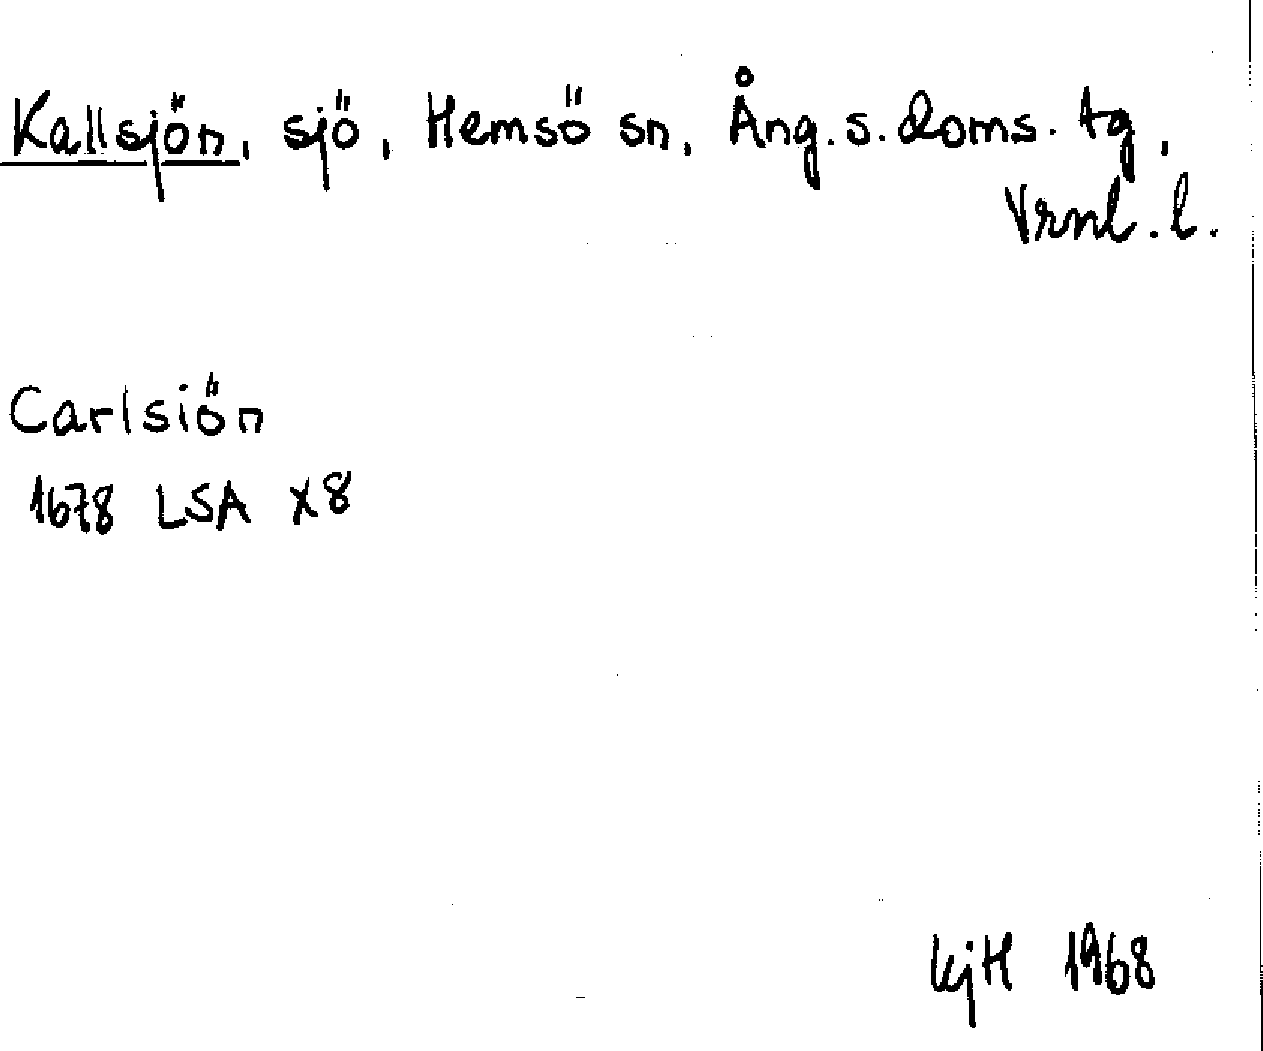 Kallsjön, sjö, Hemsö sn, Ång. s. doms. tg,
Vrnl. l.
Carlsiön
1678 LSA X8
KjH 1968